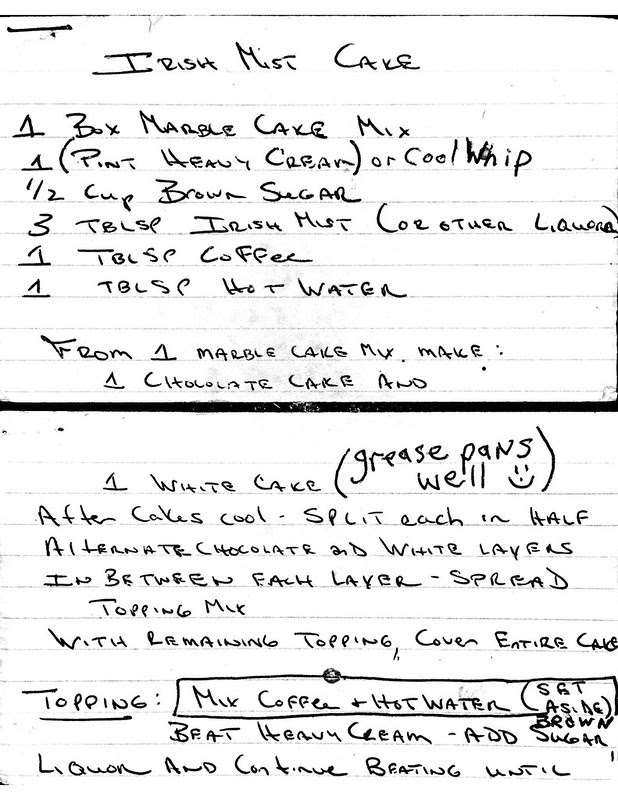 Irish Mist Cake
1 Box Marble Cake Mix
1 (Pint Heavy Cream) or Cool Whip
1/2 Cup Brown Sugar
3 TBLSP Irish Mist (or other Liquors)
1 TBLSP Coffee
1 TBLSP Hot Water
From 1 marble cake mix, make:
1 Chocolate Cake and
1 White Cake (grease pans
well ☺)
After Cakes cool - Split each in Half
Alternate Chocolate and White Layers
In Between Each Layer - Spread
Topping Mix
With remaining topping, Cover Entire Cake
Topping: Mix Coffee + Hot Water (Set Aside)
Beat Heavy Cream - Add Brown Sugar
Liquor and Continue Beating until